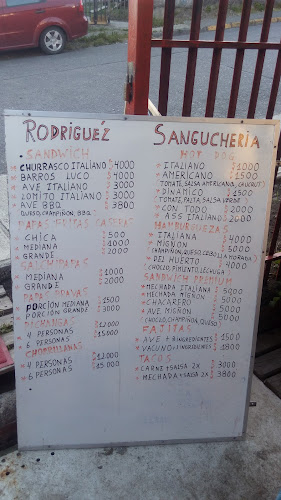 RODRIGUEZ SANGUCHERIA
SANDWICH
CHURRASCO ITALIANO $4000
BARROS LUCO $4000
AVE ITALIANO $3000
LOMITO ITALIANO $3000
AVE BBQ $4000
QUESO, CHAMPIÑON, BBQ
PAPAS FRITAS CASERA
CHICA $500
MEDIANA $
GRANDE $2000
SALCHIPAPAS
MEDIANA $1000
GRANDE $2000
PAPA BRAVAS
PORCION MEDIANA $1500
PORCION GRANDE $3000
PICHANGAS
4 PERSONAS $12.000
6 PERSONAS $15.000
CHORRILLANAS
4 PERSONAS $12000
6 PERSONAS $15.000
HOT DOG
ITALIANO $1000
AMERICANO $1500
TOMATE, SALSA AMERICANA, CHUCRUT
DINAMICO $
TOMATE, PALTA, SALSA VERDE
CON TODO $2000
ASS ITALIANO $
HAMBURGUEZAS
ITALIANA $4000
MIGÑON $5000
CHAMPIÑON, QUESO, CEBOLLA MORADA
DEL HUERTO $4000
CHOCLO, PIMENTO, LECHUGA
SANDWICH PREMIUM
MECHADA ITALIANA $4500
MECHADA MIGÑON $5000
CHACARERO $
AVE MIGÑON $5000
CHOCLO, CHAMPIÑON, QUESO
FAJITAS
AVE + 2 INGREDIENTES $1500
VACUNO + 2 INGREDIENTES $1800
TACOS
CARNE + SALSA 2X $3000
MECHADA + SALSA 2X $3800